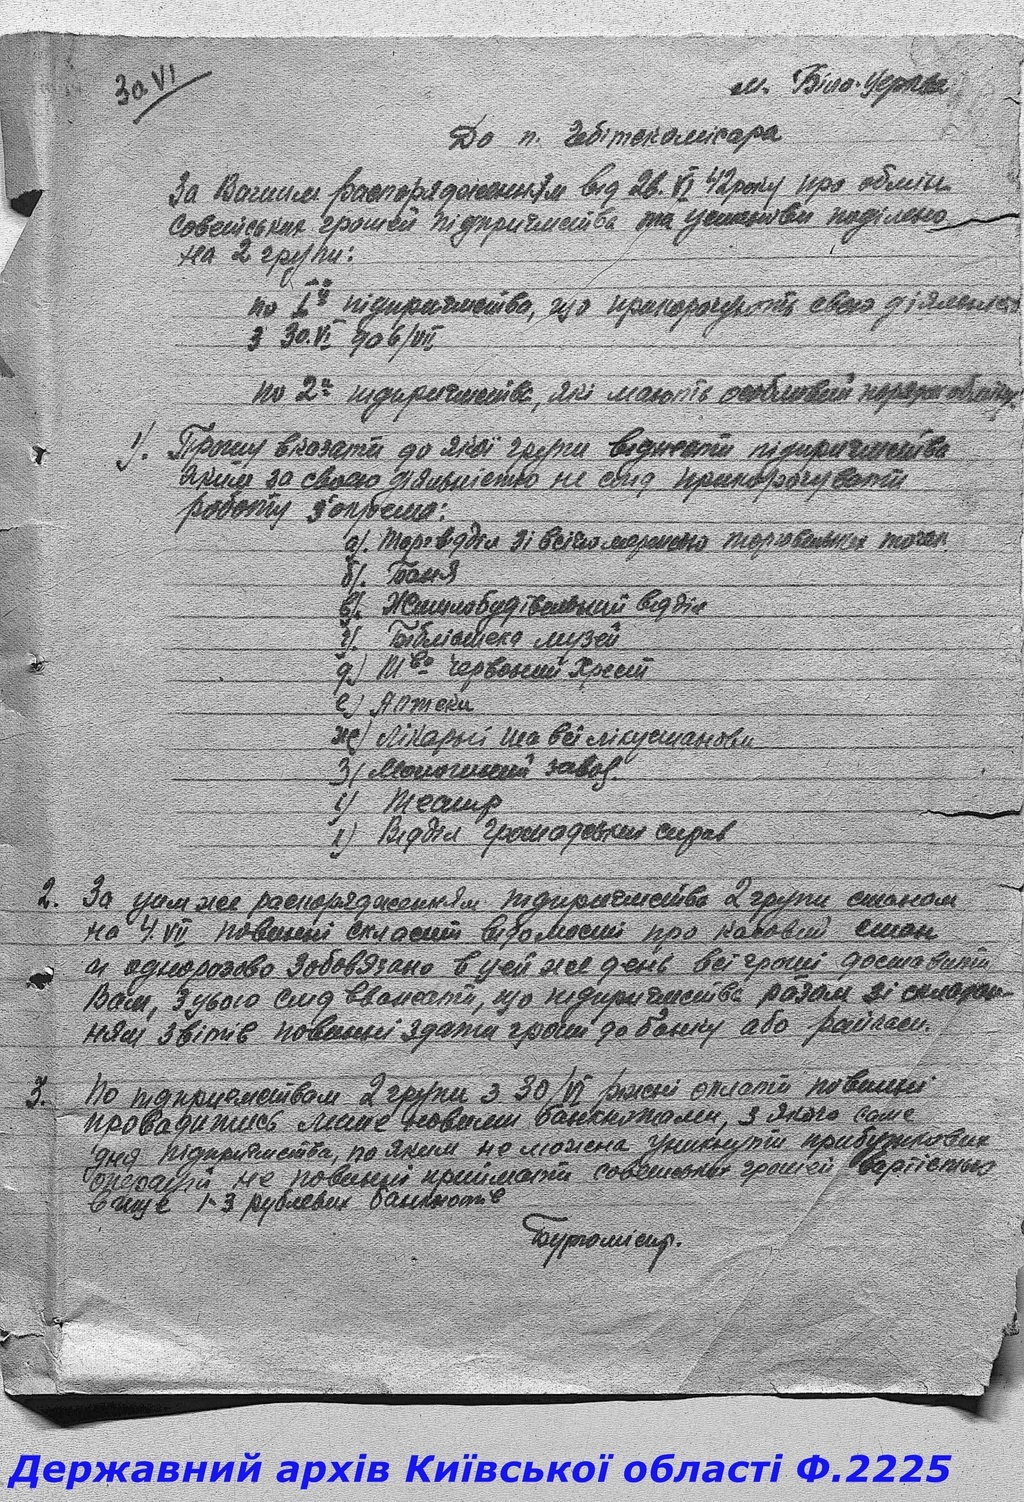 30 VI
м. Біла-Церква
До п. Гебітскомісара
За Вашим распорядженням від 26. VI 42 року про обмін
совєтських грошей підприємства та установи поділено
на 2 групи:
по 1й підприємства, що припорочують свою діяльність
з 30.VI до 6/VII
по 2й підприємства, які мають особливий порядок обміну.
1). Прошу вказати до якої групи віднести підприємства
яким за своєю діяльністю не слід припорочувати
роботу з'окрема:
а). Торгвідділ зі всією мережею торговельних точок
б). Баня
в). Житлобудівельний відділ
г). Бібліотека музей
д) Т-во Червоний Хрест
е) Аптеки
ж) Лікарні та всі лікустанови
з) Молочний завод
і) Театр
ї) Відділ громадських справ
2. За цим же распорядженням підприємства 2 групи станом
на 4.VII повинні скласти відомості про касовий стан
и одноразово зобов'язано в цей же день всі гроші доставити
Вам, з цього слід вважати, що підприємства разом зі складан-
ням звітів повинні здати гроші до банку або райкаси.
3. По підприємствам 2 групи з 30/VI ріжні оплати повинні
провадитись лише новими банкнотами, з якого саме
дня підприємства, по яким не можна уникнути прибуткових
операцій не повинні приймати совєтських грошей вартістью
вище 1-3 рублевих банкнотів
Бургомістр.
Державний архів Київської області Ф.2225